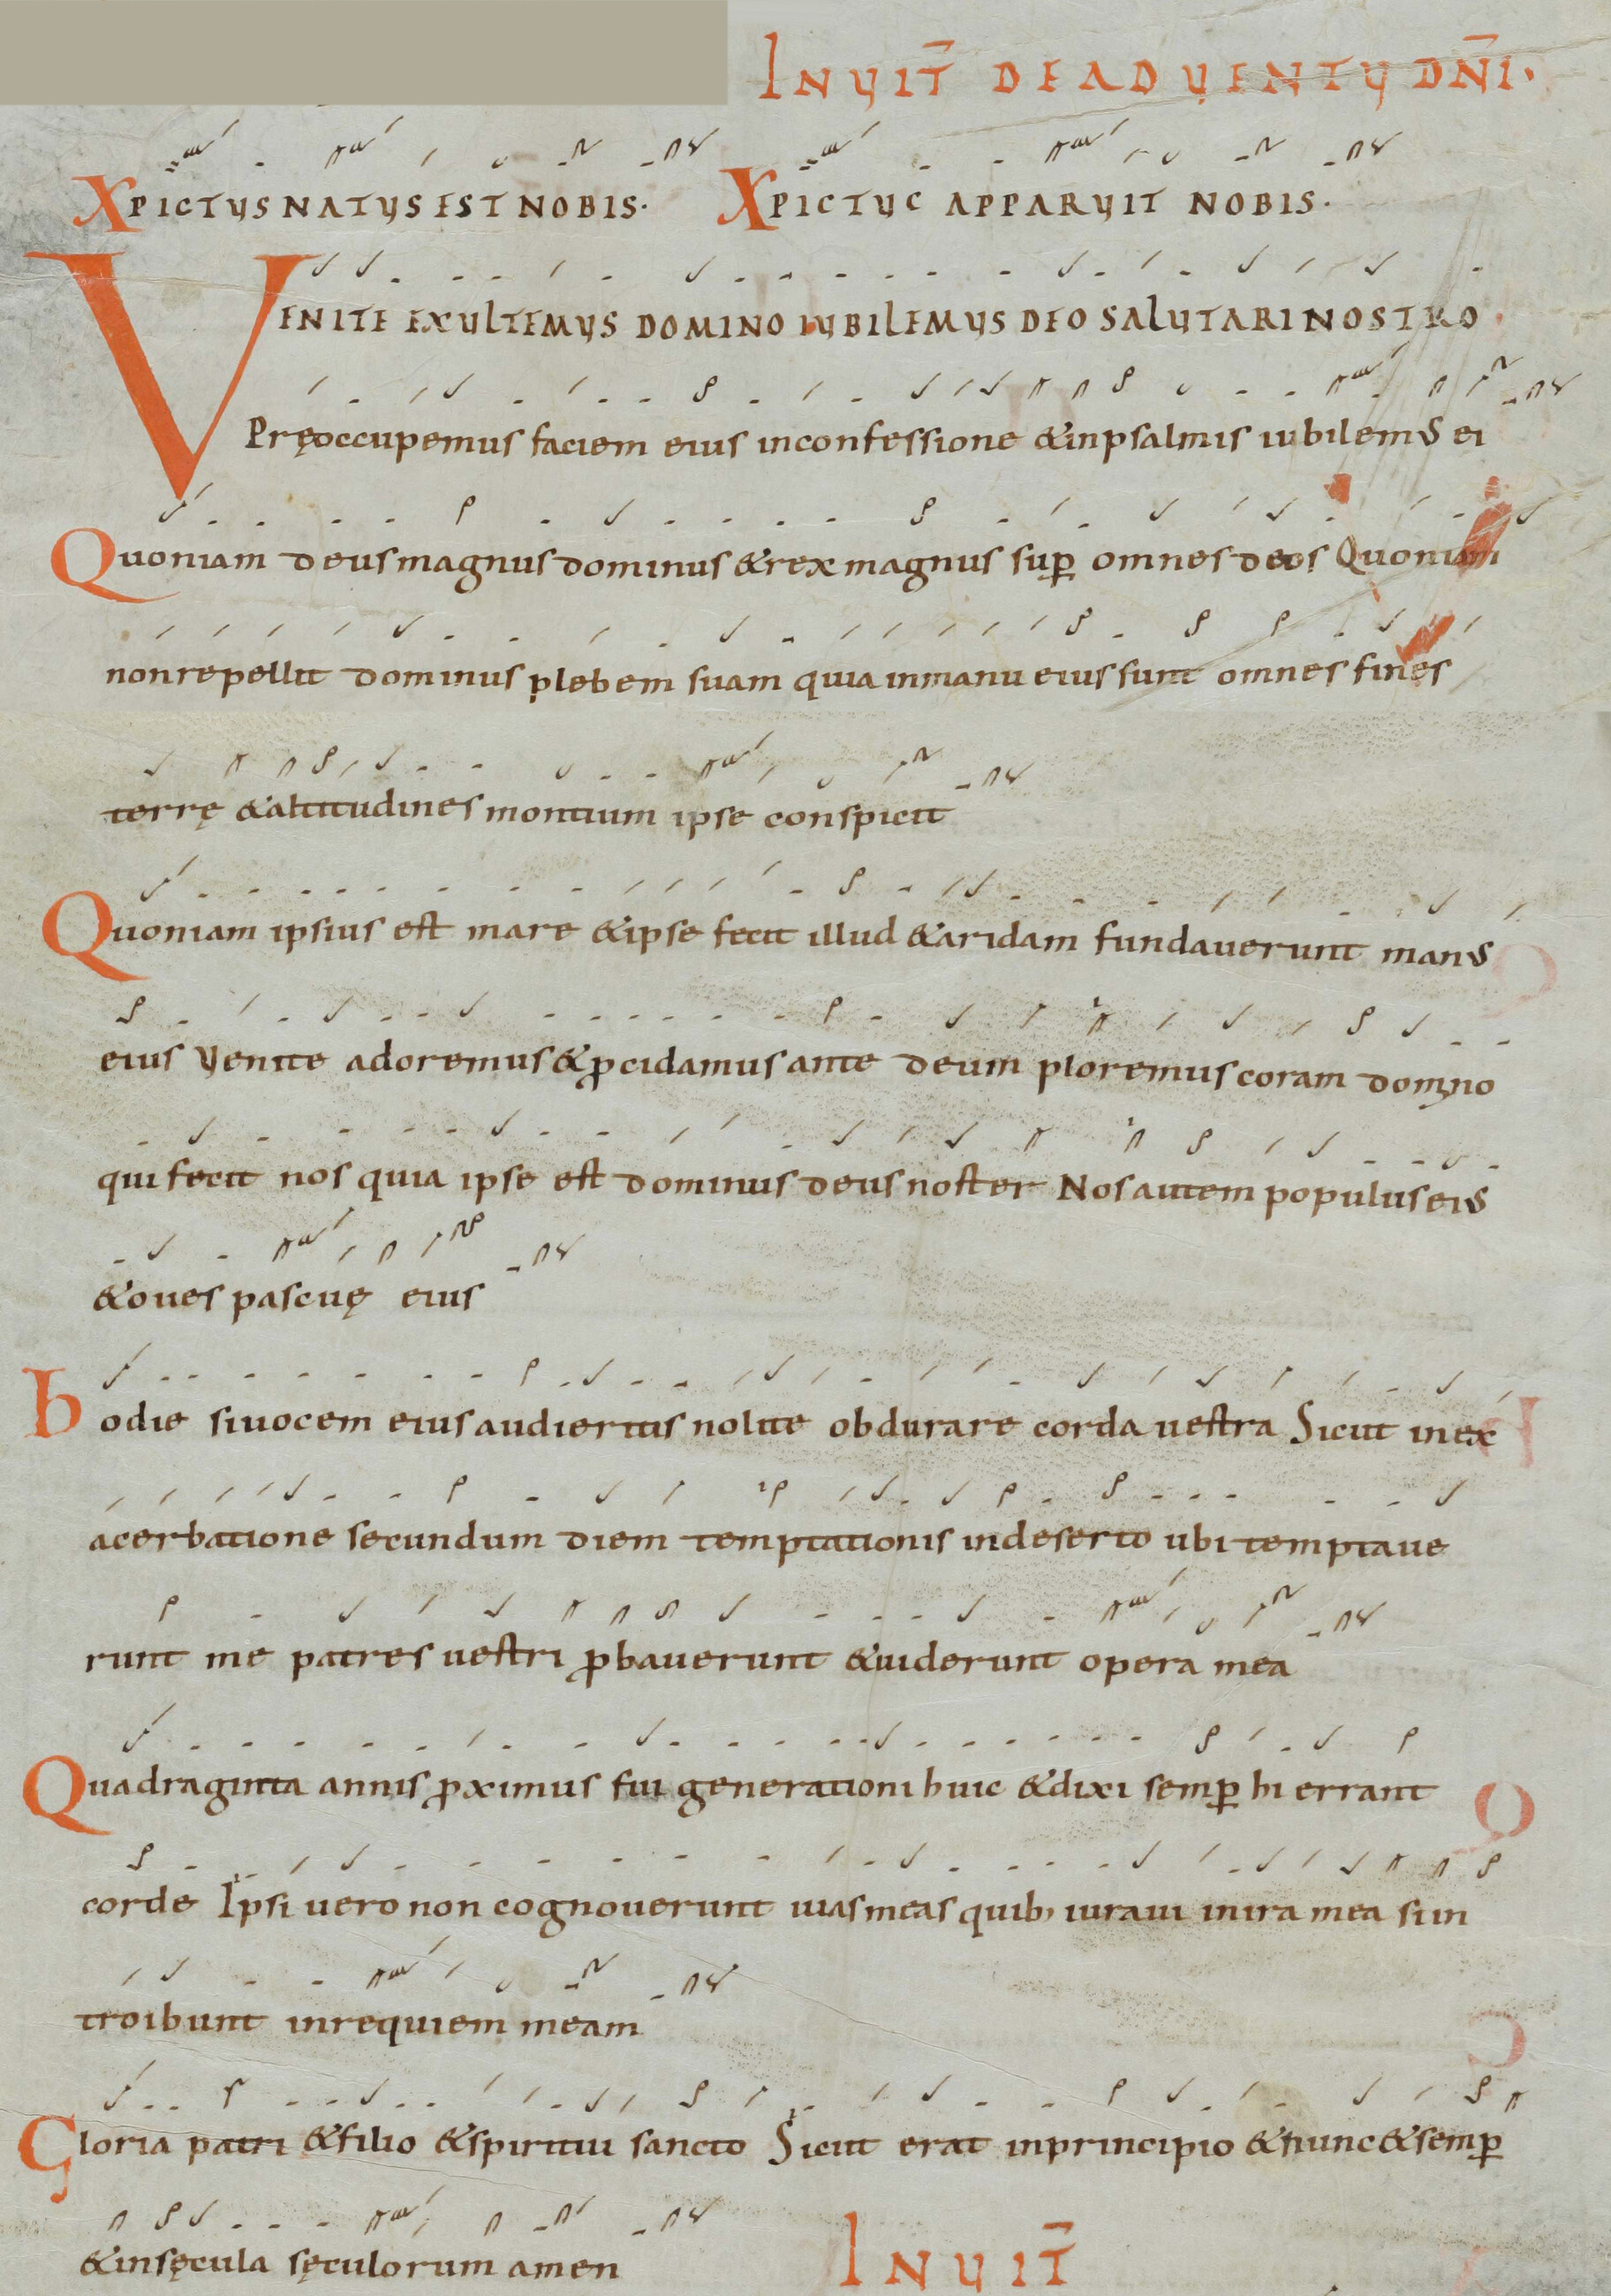 INVIT̄ DE ADVENTV DN̄I.
XPICTVS NATVS EST NOBIS. XPICTVC APPARVIT NOBIS.
VENITE EXVLTEMVS DOMINO IVBILEMVS DEO SALVTARI NOSTRO.
Pręoccupemus faciem eius inconfessione &inpsalmis iubilemus ei
Quoniam deus magnus dominus &rex magnus sup̄ omnes deos Quoniam
non repellit dominus plebem suam quia inmanu eius sunt omnes fines
terrę &altitudines montium ipse conspicit
Quoniam ipsius est mare &ipse fecit illud &aridam fundauerunt manus
eius Venite adoremus &ꝓcidamus ante deum ploremus coram domino
qui fecit nos quia ipse est dominus deus noster Nos autem populus eius
&oues pascuę eius
hodie siuocem eius audieritis nolite obdurare corda uestra Sicut inex
acerbatione secundum diem temptationis indeserto ubi temptaue
runt me patres uestri ꝓbauerunt &uiderunt opera mea
Quadraginta annis ꝓximus fui generationi huic &dixi semꝑ hi errant
corde Ipsi uero non cognouerunt uias meas quib; iuraui inira mea siin
troibunt inrequiem meam
Gloria patri &filio &spiritui sancto Sicut erat inprincipio &nunc &semꝑ
&insęcula sęculorum amen
INVIT̄